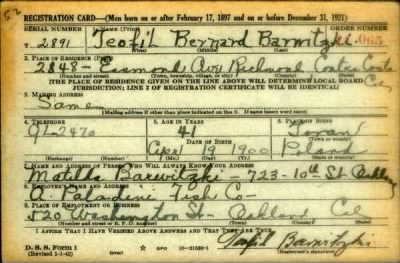 52
REGISTRATION CARD—(Men born on or after February 17, 1897 and on or before December 31, 1921)
SERIAL NUMBER 1. NAME (Print) ORDER NUMBER
T 2891 Teofil Bernard Barwitzki
(First) (Middle) (Last)
2. PLACE OF RESIDENCE (Print)
2848 - Esmond Ave Richmond Contra Costa Co.
(Number and street) (Town, township, village, or city) (County) (State)
[THE PLACE OF RESIDENCE GIVEN ON THE LINE ABOVE WILL DETERMINE LOCAL BOARD
JURISDICTION; LINE 2 OF REGISTRATION CERTIFICATE WILL BE IDENTICAL]
3. MAILING ADDRESS
Same
[Mailing address if other than place indicated on line 2. If same insert word same]
4. TELEPHONE 5. AGE IN YEARS 6. PLACE OF BIRTH
GL-2470 41
DATE OF BIRTH
19 1900 Poland
(Exchange) (Number) (Mo.) (Day) (Yr.) (State or country)
7. NAME AND ADDRESS OF PERSON WHO WILL ALWAYS KNOW YOUR ADDRESS
Barwitzki - 723-10th St
8. EMPLOYER'S NAME AND ADDRESS
A Paladini Fish Co-
9. PLACE OF EMPLOYMENT OR BUSINESS
520 Washington St- Oakland Cal
(Number and street or R. F. D. number) (Town) (County) (State)
I AFFIRM THAT I HAVE VERIFIED ABOVE ANSWERS AND THAT THEY ARE TRUE.
D. S. S. Form 1
(Revised 1-1-42) GPO 16-21630-1 Teofil Barwitzki
(Registrant's signature)